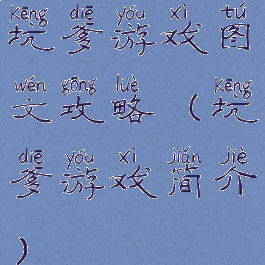 kēng diē yóu xì tú
坑爹游戏图
wén gōng lüè kēng
文攻略（坑
diē yóu xì jiǎn jiè
爹游戏简介
）